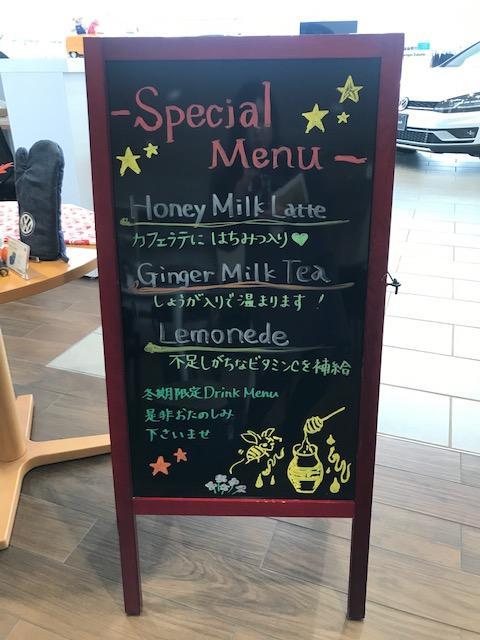 -Special
Menu-
Honey Milk Latte
カフェラテに はちみつ入り♥
Ginger Milk Tea
しょうが入りで温まります！
Lemonede
不足しがちなビタミンCを補給
冬期限定 Drink Menu
是非おたのしみ
下さいませ